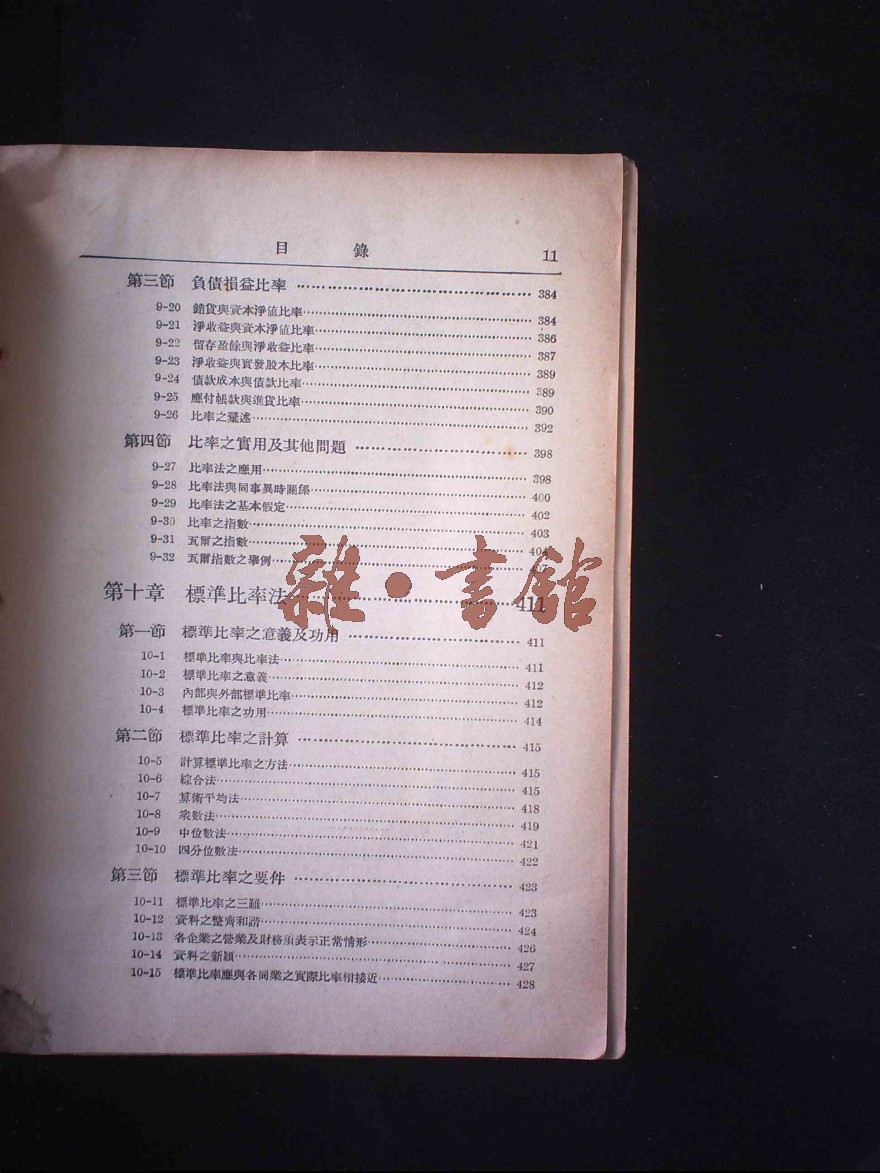 目 錄 11
第三節 負債損益比率 ……………… 384
9-20 銷貨與資本淨值比率……………… 384
9-21 淨收益與資本淨值比率……………… 386
9-22 留存盈餘與淨收益比率……………… 387
9-23 淨收益與實發股本比率……………… 389
9-24 債款成本與債款比率……………… 389
9-25 應付帳款與進貨比率……………… 390
9-26 比率之彙述……………… 392
第四節 比率之實用及其他問題 ……………… 398
9-27 比率法之應用……………… 398
9-28 比率法與同事異時關係……………… 400
9-29 比率法之基本假定……………… 402
9-30 比率之指數……………… 403
9-31 瓦爾之指數……………… 404
9-32 瓦爾指數之舉例………………
第十章 標準比率法……………… 411
雜·書館
第一節 標準比率之意義及功用 ……………… 411
10-1 標準比率與比率法……………… 411
10-2 標準比率之意義……………… 412
10-3 內部與外部標準比率……………… 412
10-4 標準比率之功用……………… 414
第二節 標準比率之計算 ……………… 415
10-5 計算標準比率之方法……………… 415
10-6 綜合法……………… 415
10-7 算術平均法……………… 418
10-8 衆數法……………… 419
10-9 中位數法……………… 421
10-10 四分位數法……………… 422
第三節 標準比率之要件 ……………… 423
10-11 標準比率之三難……………… 423
10-12 資料之整齊和諧……………… 424
10-13 各企業之營業及財務須表示正常情形……………… 426
10-14 資料之新穎……………… 427
10-15 標準比率應與各同業之實際比率相接近……………… 428